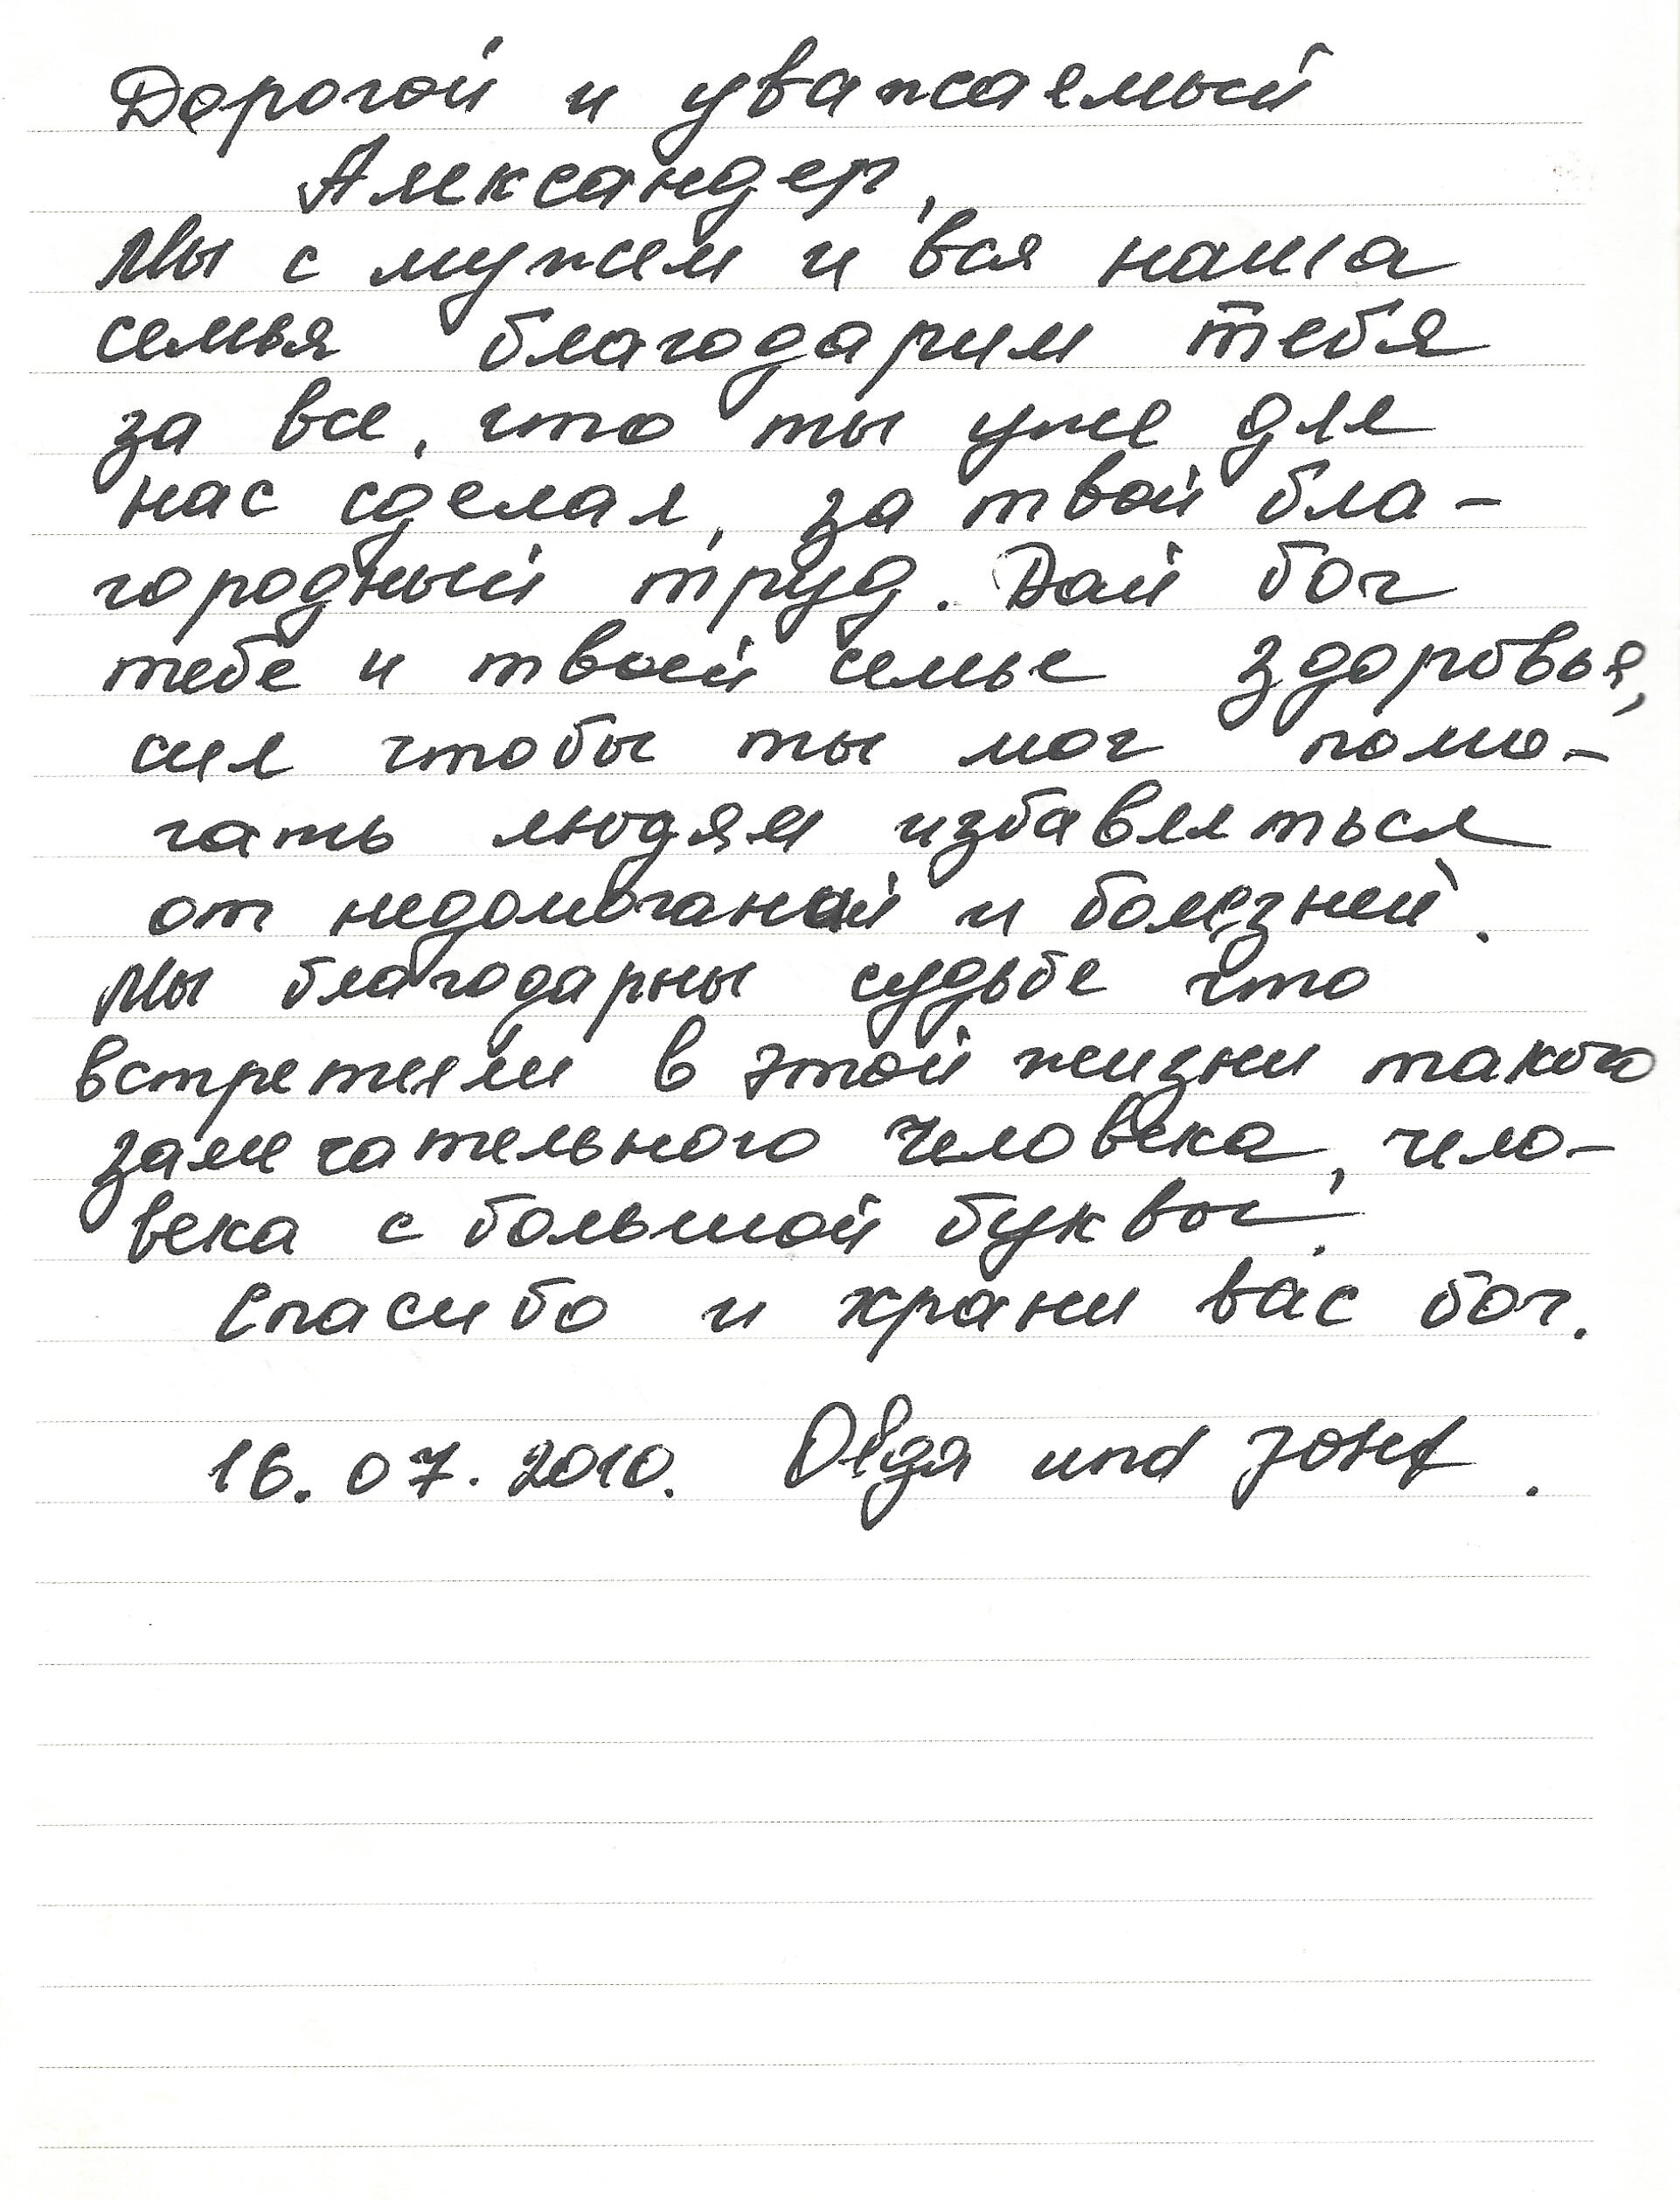 Дорогой и уважаемый
Александер,
Мы с мужем и вся наша
семья благодарим тебя
за все, что ты уже для
нас сделал, за твой бла-
городный труд. Дай бог
тебе и твоей семье здоровья,
сил чтобы ты мог помо-
гать людям избавляться
от недомоганий и болезней.
Мы благодарны судьбе что
встретили в этой жизни такого
замечательного человека, чело-
века с большой буквы.
Спасибо и храни вас бог.
16.07.2010. Olga und Josef.